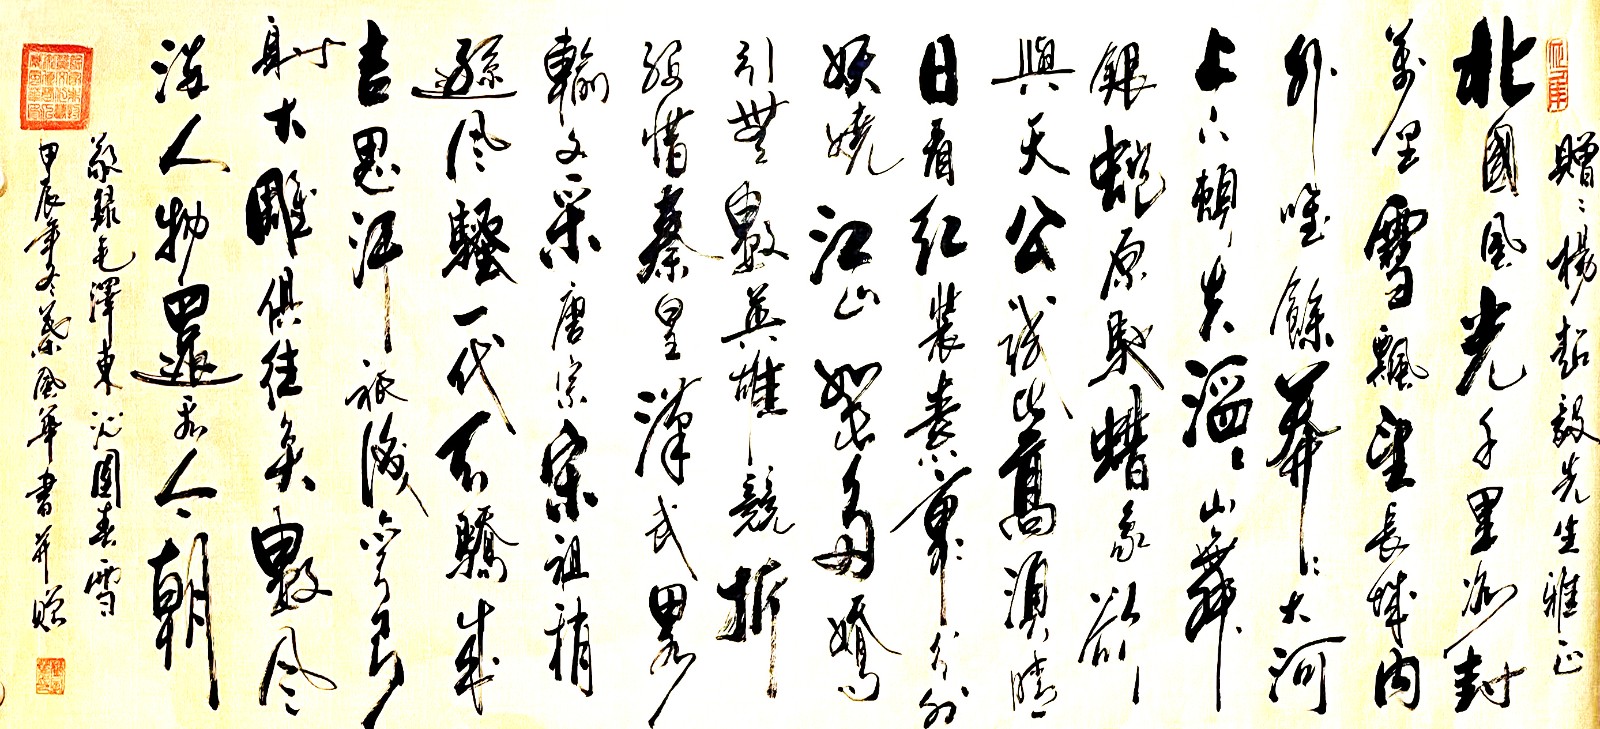 贈楊超毅先生雅正
北國風光千里冰封
萬里雪飄望長城內
外唯餘莽〻大河
上下頓失滔〻山舞
銀蛇原馳蠟象欲
與天公試比高須晴
日看紅裝素裹分外
妖嬈江山如此多嬌
引無數英雄競折
腰惜秦皇漢武略
輸文采唐宗宋祖稍
遜風騷一代天驕成
吉思汗祇識彎弓
射大雕俱往矣數風
流人物還看今朝
敬録毛澤東沁園春雪
甲辰年冬葉風華書并贈